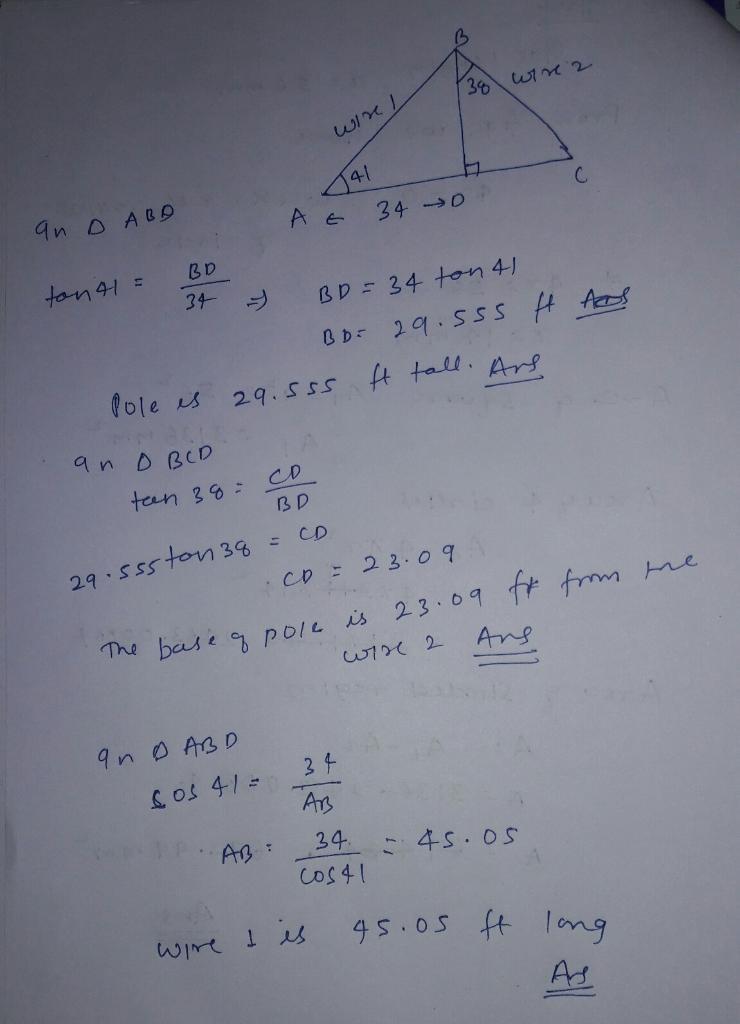 B
wire 1
38
wire 2
41
A ← 34 → D
C
In Δ ABD
tan 41 = BD/34 ⇒ BD = 34 tan 41
BD = 29.555 ft Ans
Pole is 29.555 ft tall. Ans
In Δ BCD
tan 38 = CD/BD
29.555 tan 38 = CD
CD = 23.09
The base of pole is 23.09 ft from the
wire 2 Ans
In Δ ABD
cos 41 = 34/AB
AB = 34/cos 41 = 45.05
wire 1 is 45.05 ft long
Ans